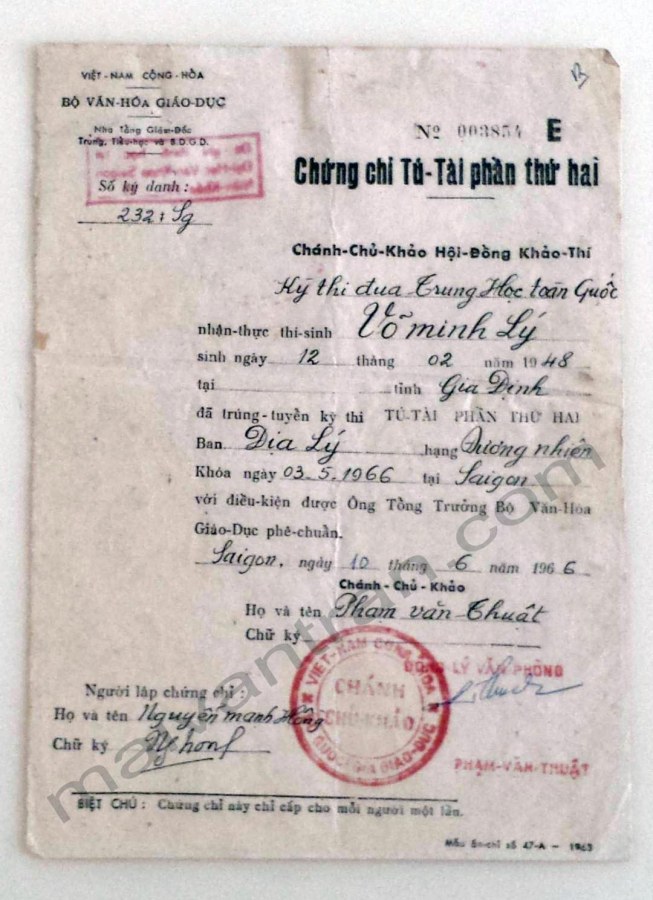 VIỆT-NAM CỘNG-HÒA
BỘ VĂN-HÓA GIÁO-DỤC
Nha Tổng Giám-Đốc
Trung, Tiểu-học và B.D.G.D.
Số ký danh:
232: Sg
B
Nº 003854 E
Chứng chỉ Tú-Tài phần thứ hai
Chánh-Chủ-Khảo Hội-Đồng Khảo-Thí
Kỳ thi đua Trung Học toàn Quốc
nhận-thực thí-sinh Võ minh Lý
sinh ngày 12 tháng 02 năm 1948
tại tỉnh Gia Định
đã trúng-tuyển kỳ thi TÚ-TÀI PHẦN THỨ HAI
Ban Địa Lý hạng Đương nhiên
Khóa ngày 03.5.1966 tại Saigon
với điều-kiện được Ông Tổng Trưởng Bộ Văn-Hóa
Giáo-Dục phê-chuẩn.
Saigon, ngày 10 tháng 6 năm 1966
Chánh-Chủ-Khảo
Họ và tên Phạm văn Thuật
Chữ ký
VIỆT-NAM CỘNG HÒA
CHÁNH
CHỦ-KHẢO
QUỐC GIA GIÁO-DỤC
LÝ VĂN PHÒNG
PHẠM-VĂN-THUẬT
Người lập chứng chỉ:
Họ và tên Nguyễn mạnh Hồng
Chữ ký Nghong
BIỆT CHÚ: Chứng chỉ này chỉ cấp cho mỗi người một lần.
Mẫu ấn-chỉ số 47-A — 1963
maivantran.com